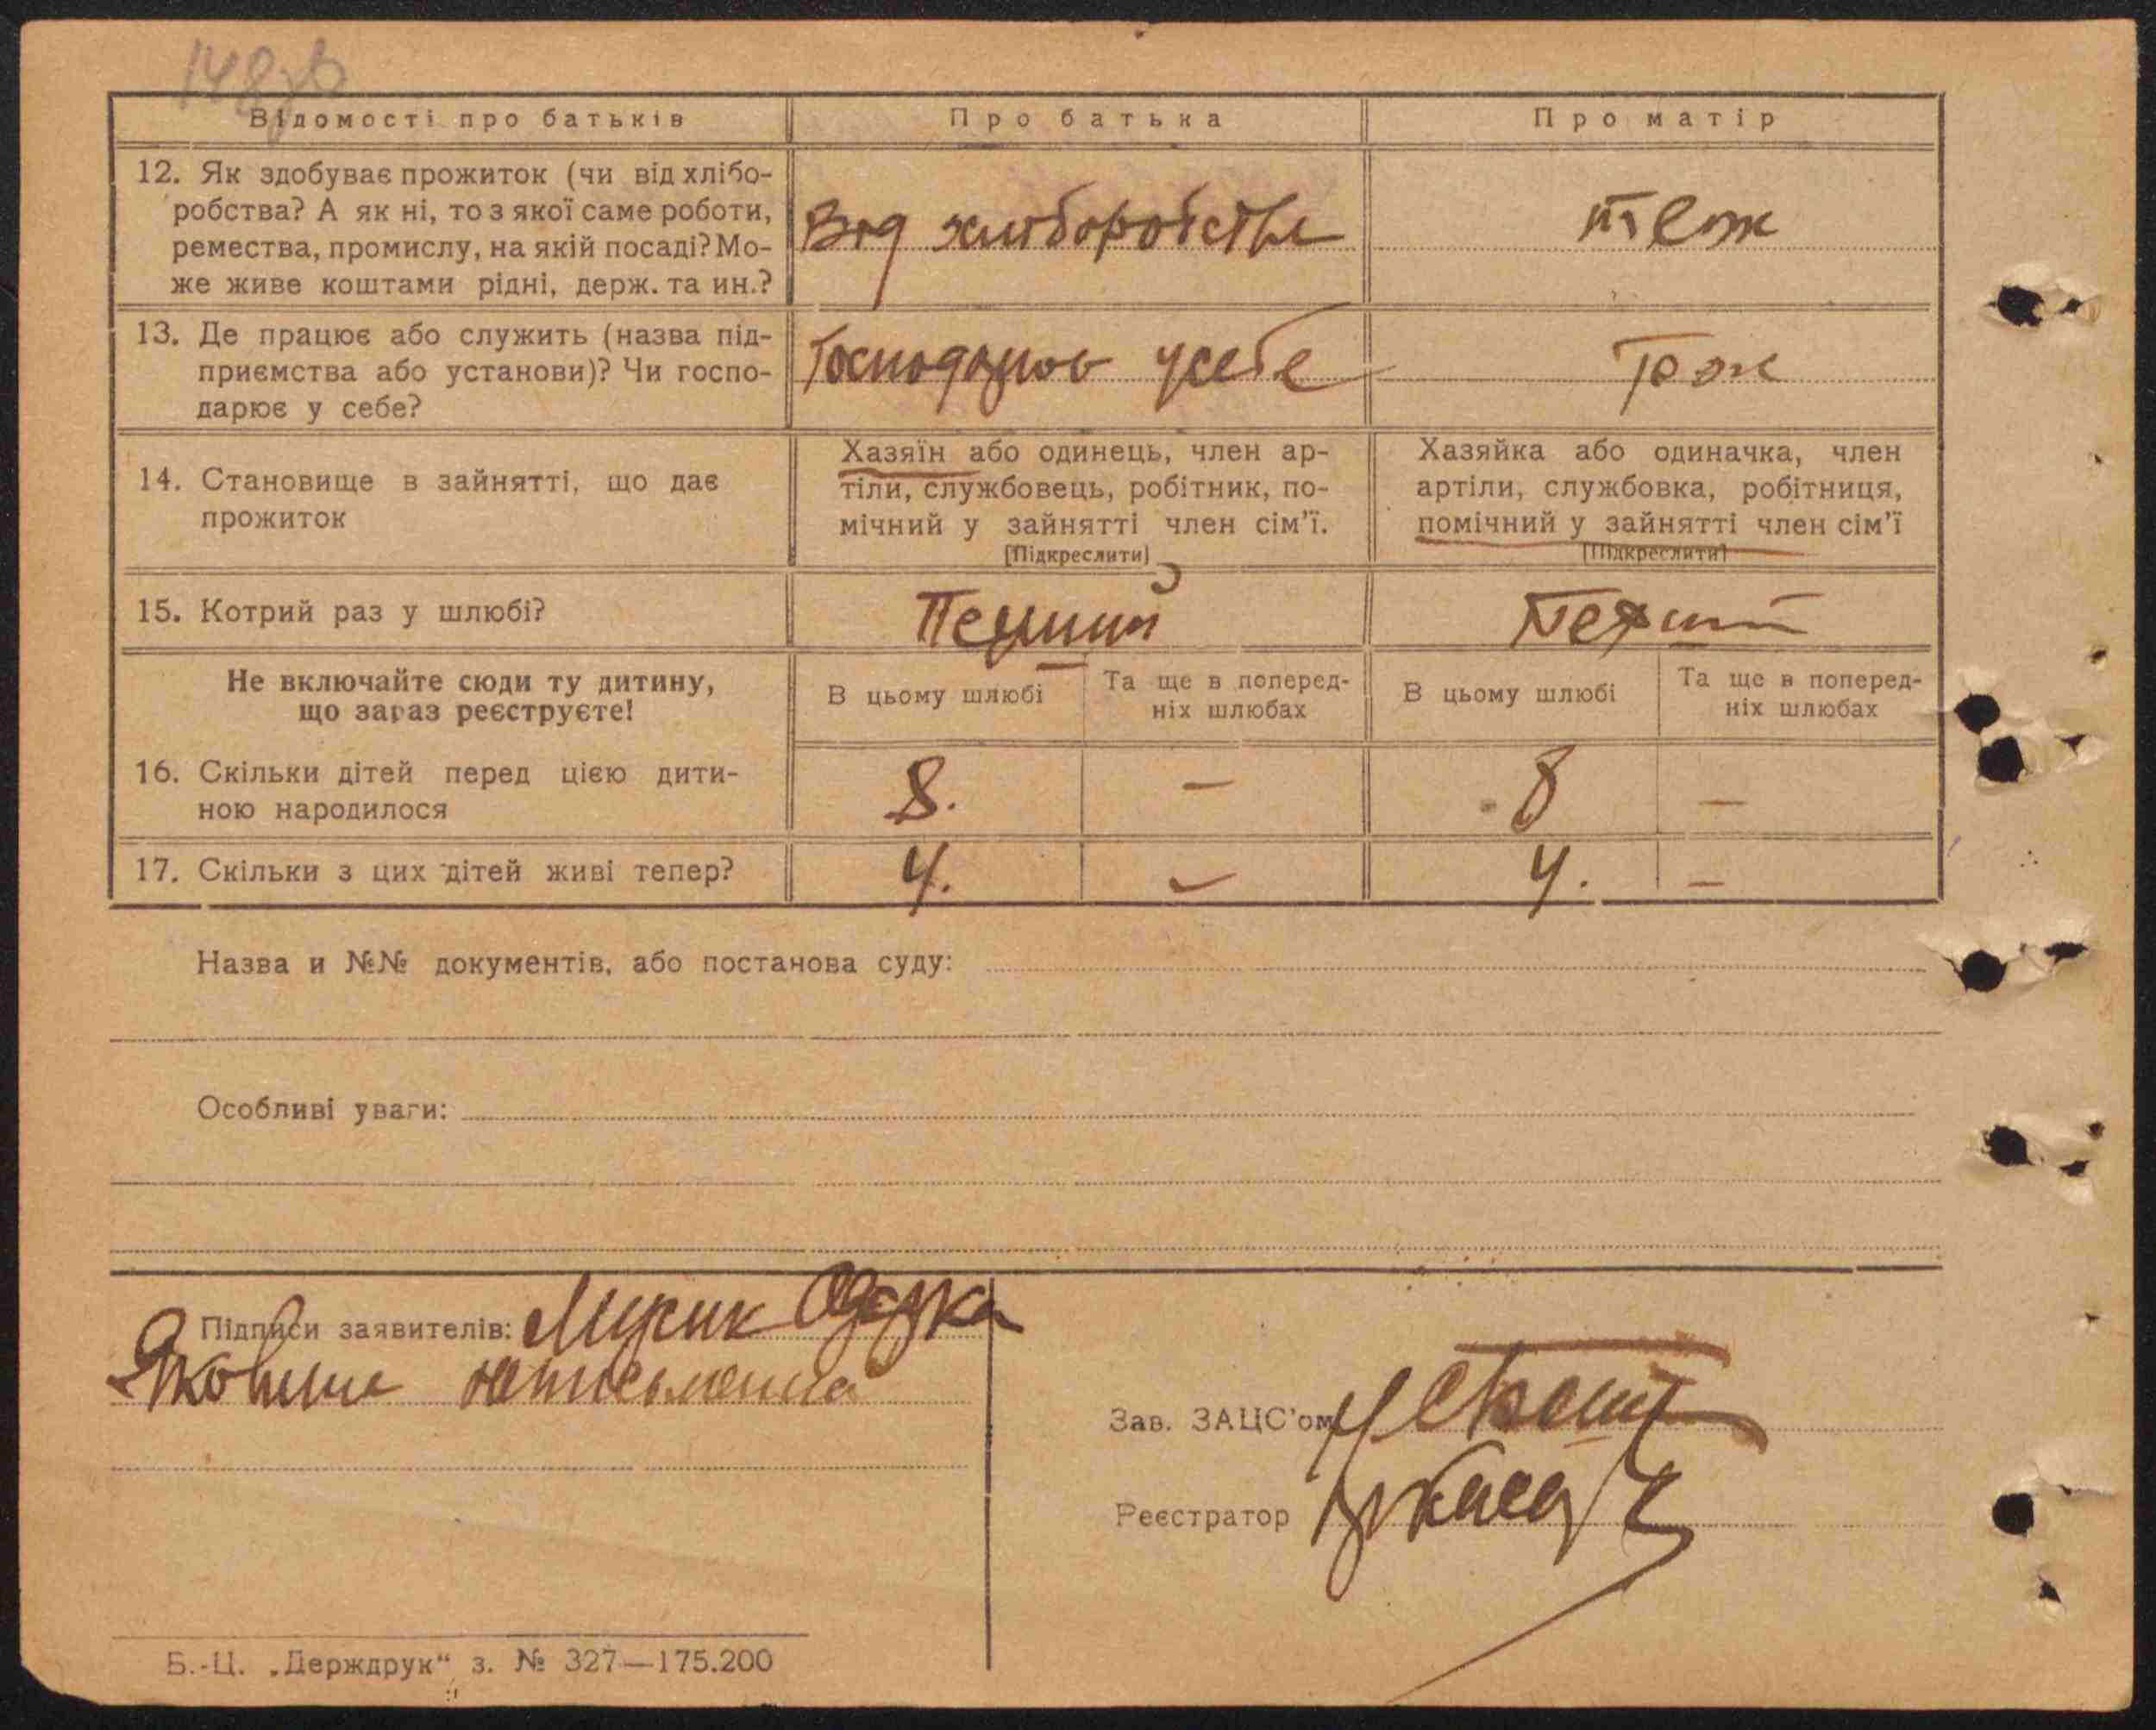 148зв
Відомості про батьків
Про батька
Про матір
12. Як здобуває прожиток (чи від хлібо-
робства? А як ні, то з якої саме роботи,
ремества, промислу, на якій посаді? Мо-
же живе коштами рідні, держ. та ин.?
Від хліборобства
теж
13. Де працює або служить (назва під-
приємства або установи)? Чи госпо-
дарює у себе?
Господарює у себе
Тож
14. Становище в зайнятті, що дає
прожиток
Хазяїн або одинець, член ар-
тіли, службовець, робітник, по-
мічний у зайнятті член сім'ї.
[Підкреслити]
Хазяйка або одиначка, член
артіли, службовка, робітниця,
помічний у зайнятті член сім'ї
[Підкреслити]
15. Котрий раз у шлюбі?
Перший
Перший
Не включайте сюди ту дитину,
що зараз реєструєте!
В цьому шлюбі
Та ще в поперед-
ніх шлюбах
В цьому шлюбі
Та ще в поперед-
ніх шлюбах
16. Скільки дітей перед цією дити-
ною народилося
8. — 8 —
17. Скільки з цих дітей живі тепер?
4. — 4. —
Назва и №№ документів, або постанова суду:
Особливі уваги:
Підписи заявителів:
неписьменна
Зав. ЗАЦС'ом
Реєстратор
Б.-Ц. „Держдрук“ з. № 327—175.200